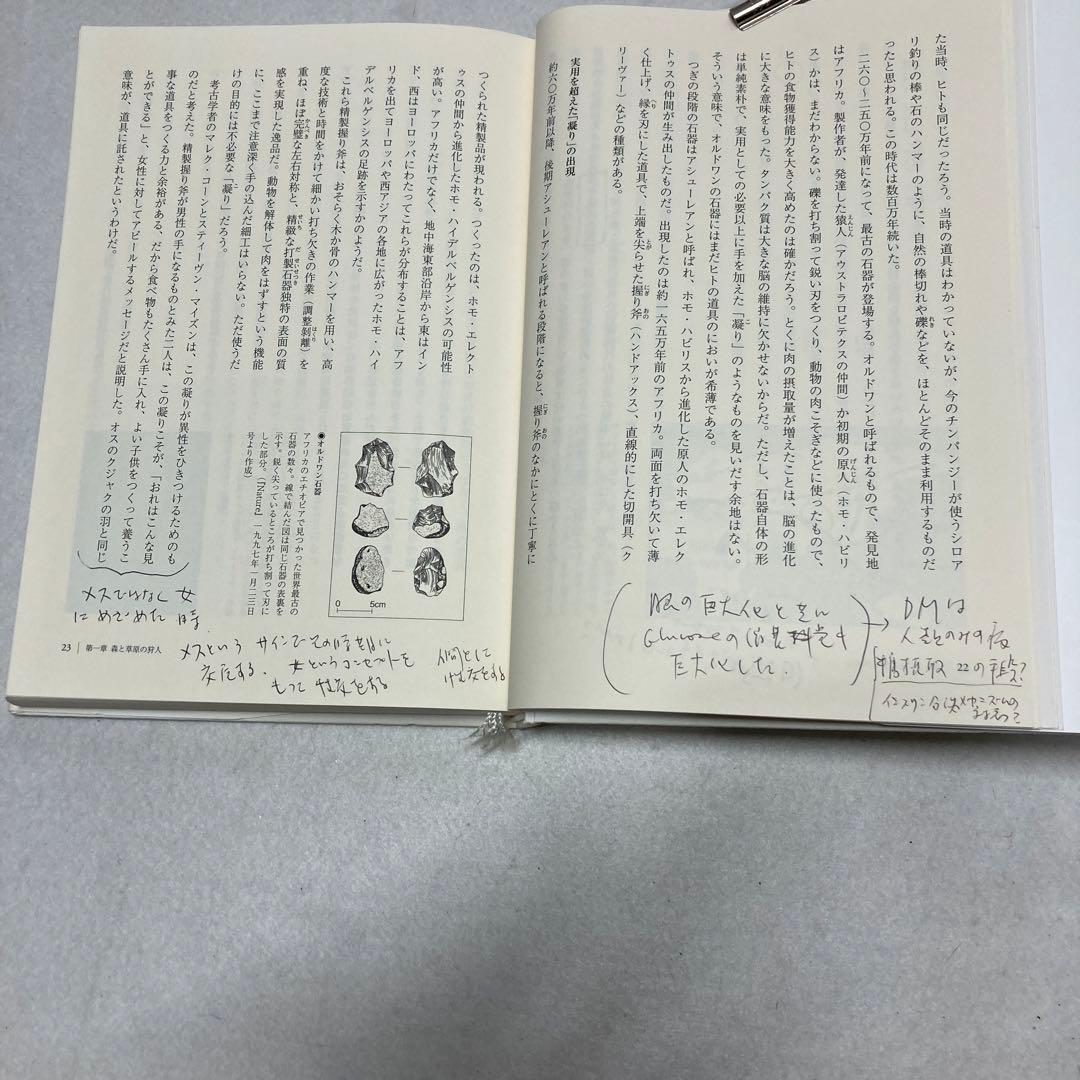 た当時、ヒトも同じだったろう。当時の道具はわかっていないが、今のチンパンジーが使うシロア
リ釣りの棒や石のハンマーのように、自然の棒切れや礫などを、ほとんどそのまま利用するものだ
ったと思われる。この時代は数百万年続いた。
二六〇〜二五〇万年前になって、最古の石器が登場する。オルドワンと呼ばれるもので、発見地
はアフリカ。製作者が、発達した猿人（アウストラロピテクスの仲間）か初期の原人（ホモ・ハビリ
ス）かは、まだわからない。礫を打ち割って鋭い刃をつくり、動物の肉こそぎなどに使ったもので、
ヒトの食物獲得能力を大きく高めたのは確かだろう。とくに肉の摂取量が増えたことは、脳の進化
に大きな意味をもった。タンパク質は大きな脳の維持に欠かせないからだ。ただし、石器自体の形
は単純素朴で、実用としての必要以上に手を加えた「凝り」のようなものを見いだす余地はない。
そういう意味で、オルドワンの石器にはまだヒトの道具のにおいが希薄である。
つぎの段階の石器はアシューレアンと呼ばれ、ホモ・ハビリスから進化した原人のホモ・エレク
トゥスの仲間が生み出したものだ。出現したのは約一六五万年前のアフリカ。両面を打ち欠いて薄
く仕上げ、縁を刃にした道具で、上端を尖らせた握り斧（ハンドアックス）、直線的にした切開具（ク
リーヴァー）などの種類がある。
実用を超えた「凝り」の出現
約六〇万年前以降、後期アシューレアンと呼ばれる段階になると、握り斧のなかにとくに丁寧に
の巨大化と
Glucoseの
巨大化した.
DMは
人類のみの病
つくられた精製品が現われる。つくったのは、ホモ・エレクト
ゥスの仲間から進化したホモ・ハイデルベルゲンシスの可能性
が高い。アフリカだけでなく、地中海東部沿岸から東はイン
ド、西はヨーロッパにわたってこれらが分布することは、アフ
リカを出てヨーロッパや西アジアの各地に広がったホモ・ハイ
デルベルゲンシスの足跡を示すかのようだ。
これら精製握り斧は、おそらく木か骨のハンマーを用い、高
度な技術と時間をかけて細かい打ち欠きの作業（調整剝離）を
重ね、ほぼ完璧な左右対称と、精緻な打製石器独特の表面の質
感を実現した逸品だ。動物を解体して肉をはずすという機能
に、ここまで注意深く手の込んだ細工はいらない。ただ使うだ
けの目的には不必要な「凝り」だろう。
考古学者のマレク・コーンとスティーヴン・マイズンは、この凝りが異性をひきつけるためのも
のだと考えた。精製握り斧が男性の手になるものとみた二人は、この凝りこそが、「おれはこんな見
事な道具をつくる力と余裕がある、だから食べ物もたくさん手に入れ、よい子供をつくって養うこ
とができる」と、女性に対してアピールするメッセージだと説明した。オスのクジャクの羽と同じ
意味が、道具に託されたというわけだ。
●オルドワン石器
アフリカのエチオピアで見つかった世界最古の
石器の数々。線で結んだ図は同じ石器の表裏を
示す。鋭く尖っているところが打ち割って刃に
した部分。（『Nature』一九九七年一月二三日
号より作成）
0 5cm
メスではなく 女
にめざめた 時.
メスという サインで
女というコンセプトを
もって 性交をする
人間として
性交をする
23 第一章 森と草原の狩人